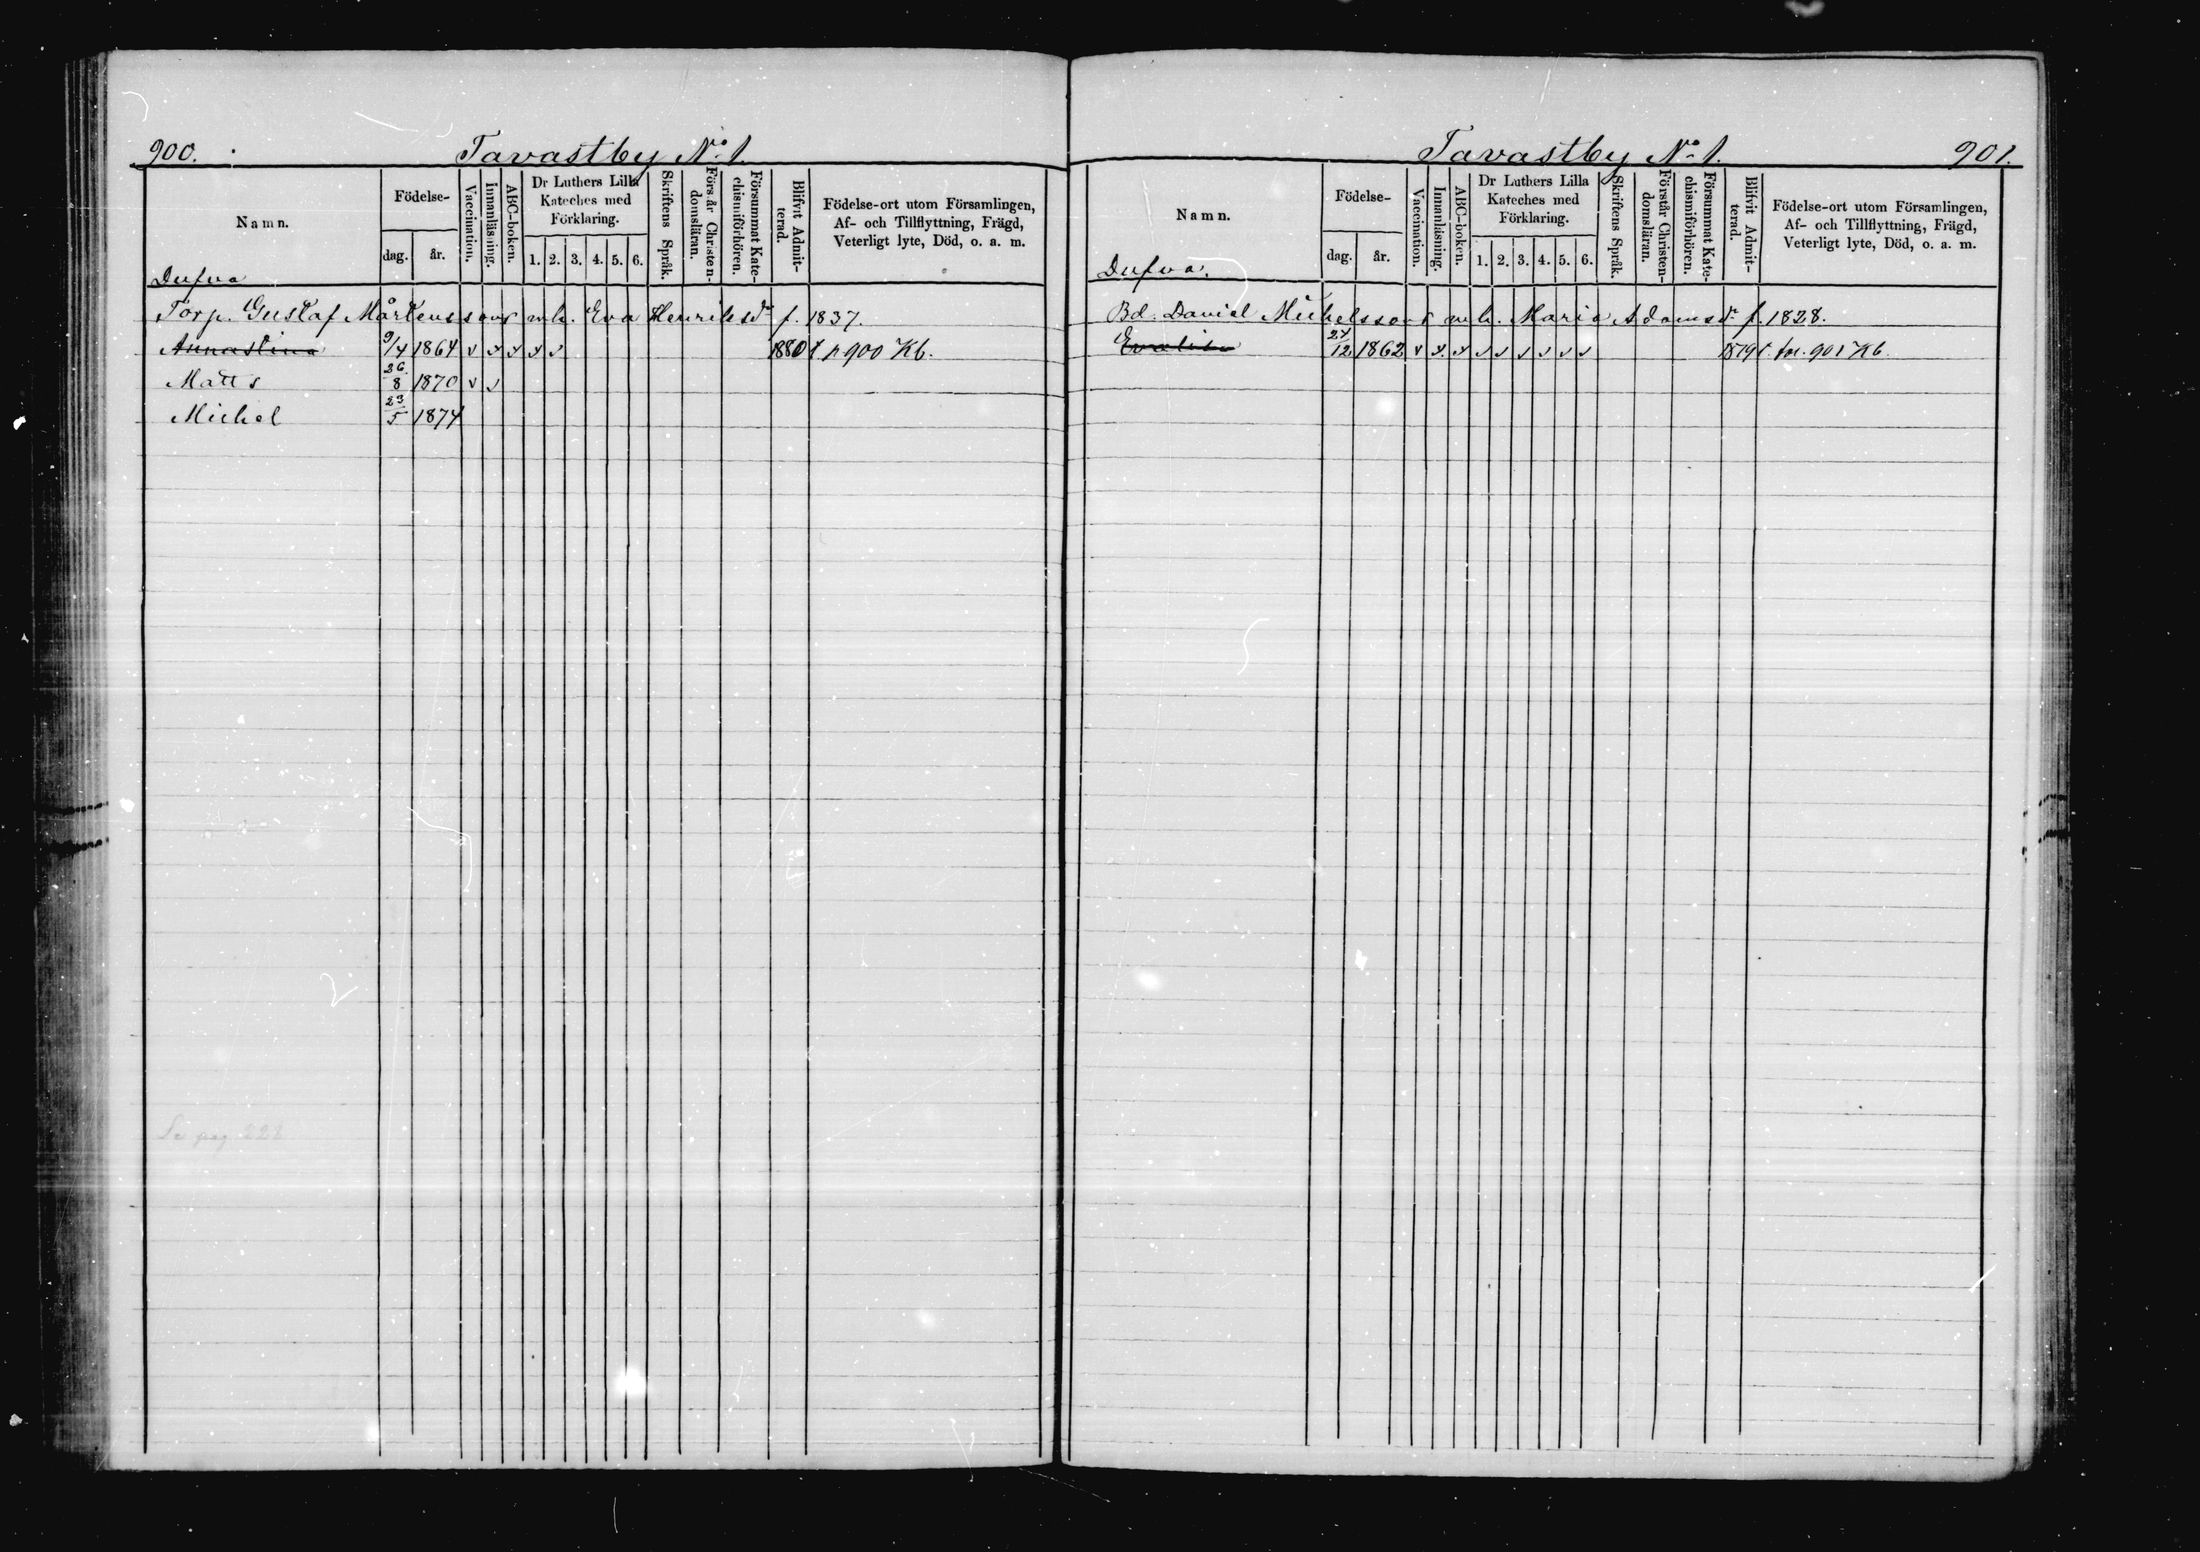 900. Tavastby No 1.
Namn. Födelse- dag. år. Vaccination. Innanläsning. ABC-boken. Dr Luthers Lilla Kateches med Förklaring. 1. 2. 3. 4. 5. 6. Skriftens Språk. Förstår Christendomsläran. Försummat Katechismiförhören. Blifvit Admitterad. Födelse-ort utom Församlingen, Af- och Tillflyttning, Frägd, Veterligt lyte, Död, o. a. m.
Dufva
Torp. Gustaf Mårtenssons m.h. Eva Henriksdr f. 1837.
Annastina 9/4 1864 v v v v v 1880 p 900 Kb.
Matts 26/8 1870 v v
Michel 23/5 1874
Se pag 228
Tavastby No 1. 901.
Namn. Födelse- dag. år. Vaccination. Innanläsning. ABC-boken. Dr Luthers Lilla Kateches med Förklaring. 1. 2. 3. 4. 5. 6. Skriftens Språk. Förstår Christendomsläran. Försummat Katechismiförhören. Blifvit Admitterad. Födelse-ort utom Församlingen, Af- och Tillflyttning, Frägd, Veterligt lyte, Död, o. a. m.
Dufva.
Bd. Daniel Michelssons m.h. Maria Adamsdr f. 1828.
Evalisa 24/12 1862 v v v v v v v v v 1879 901 Kb.